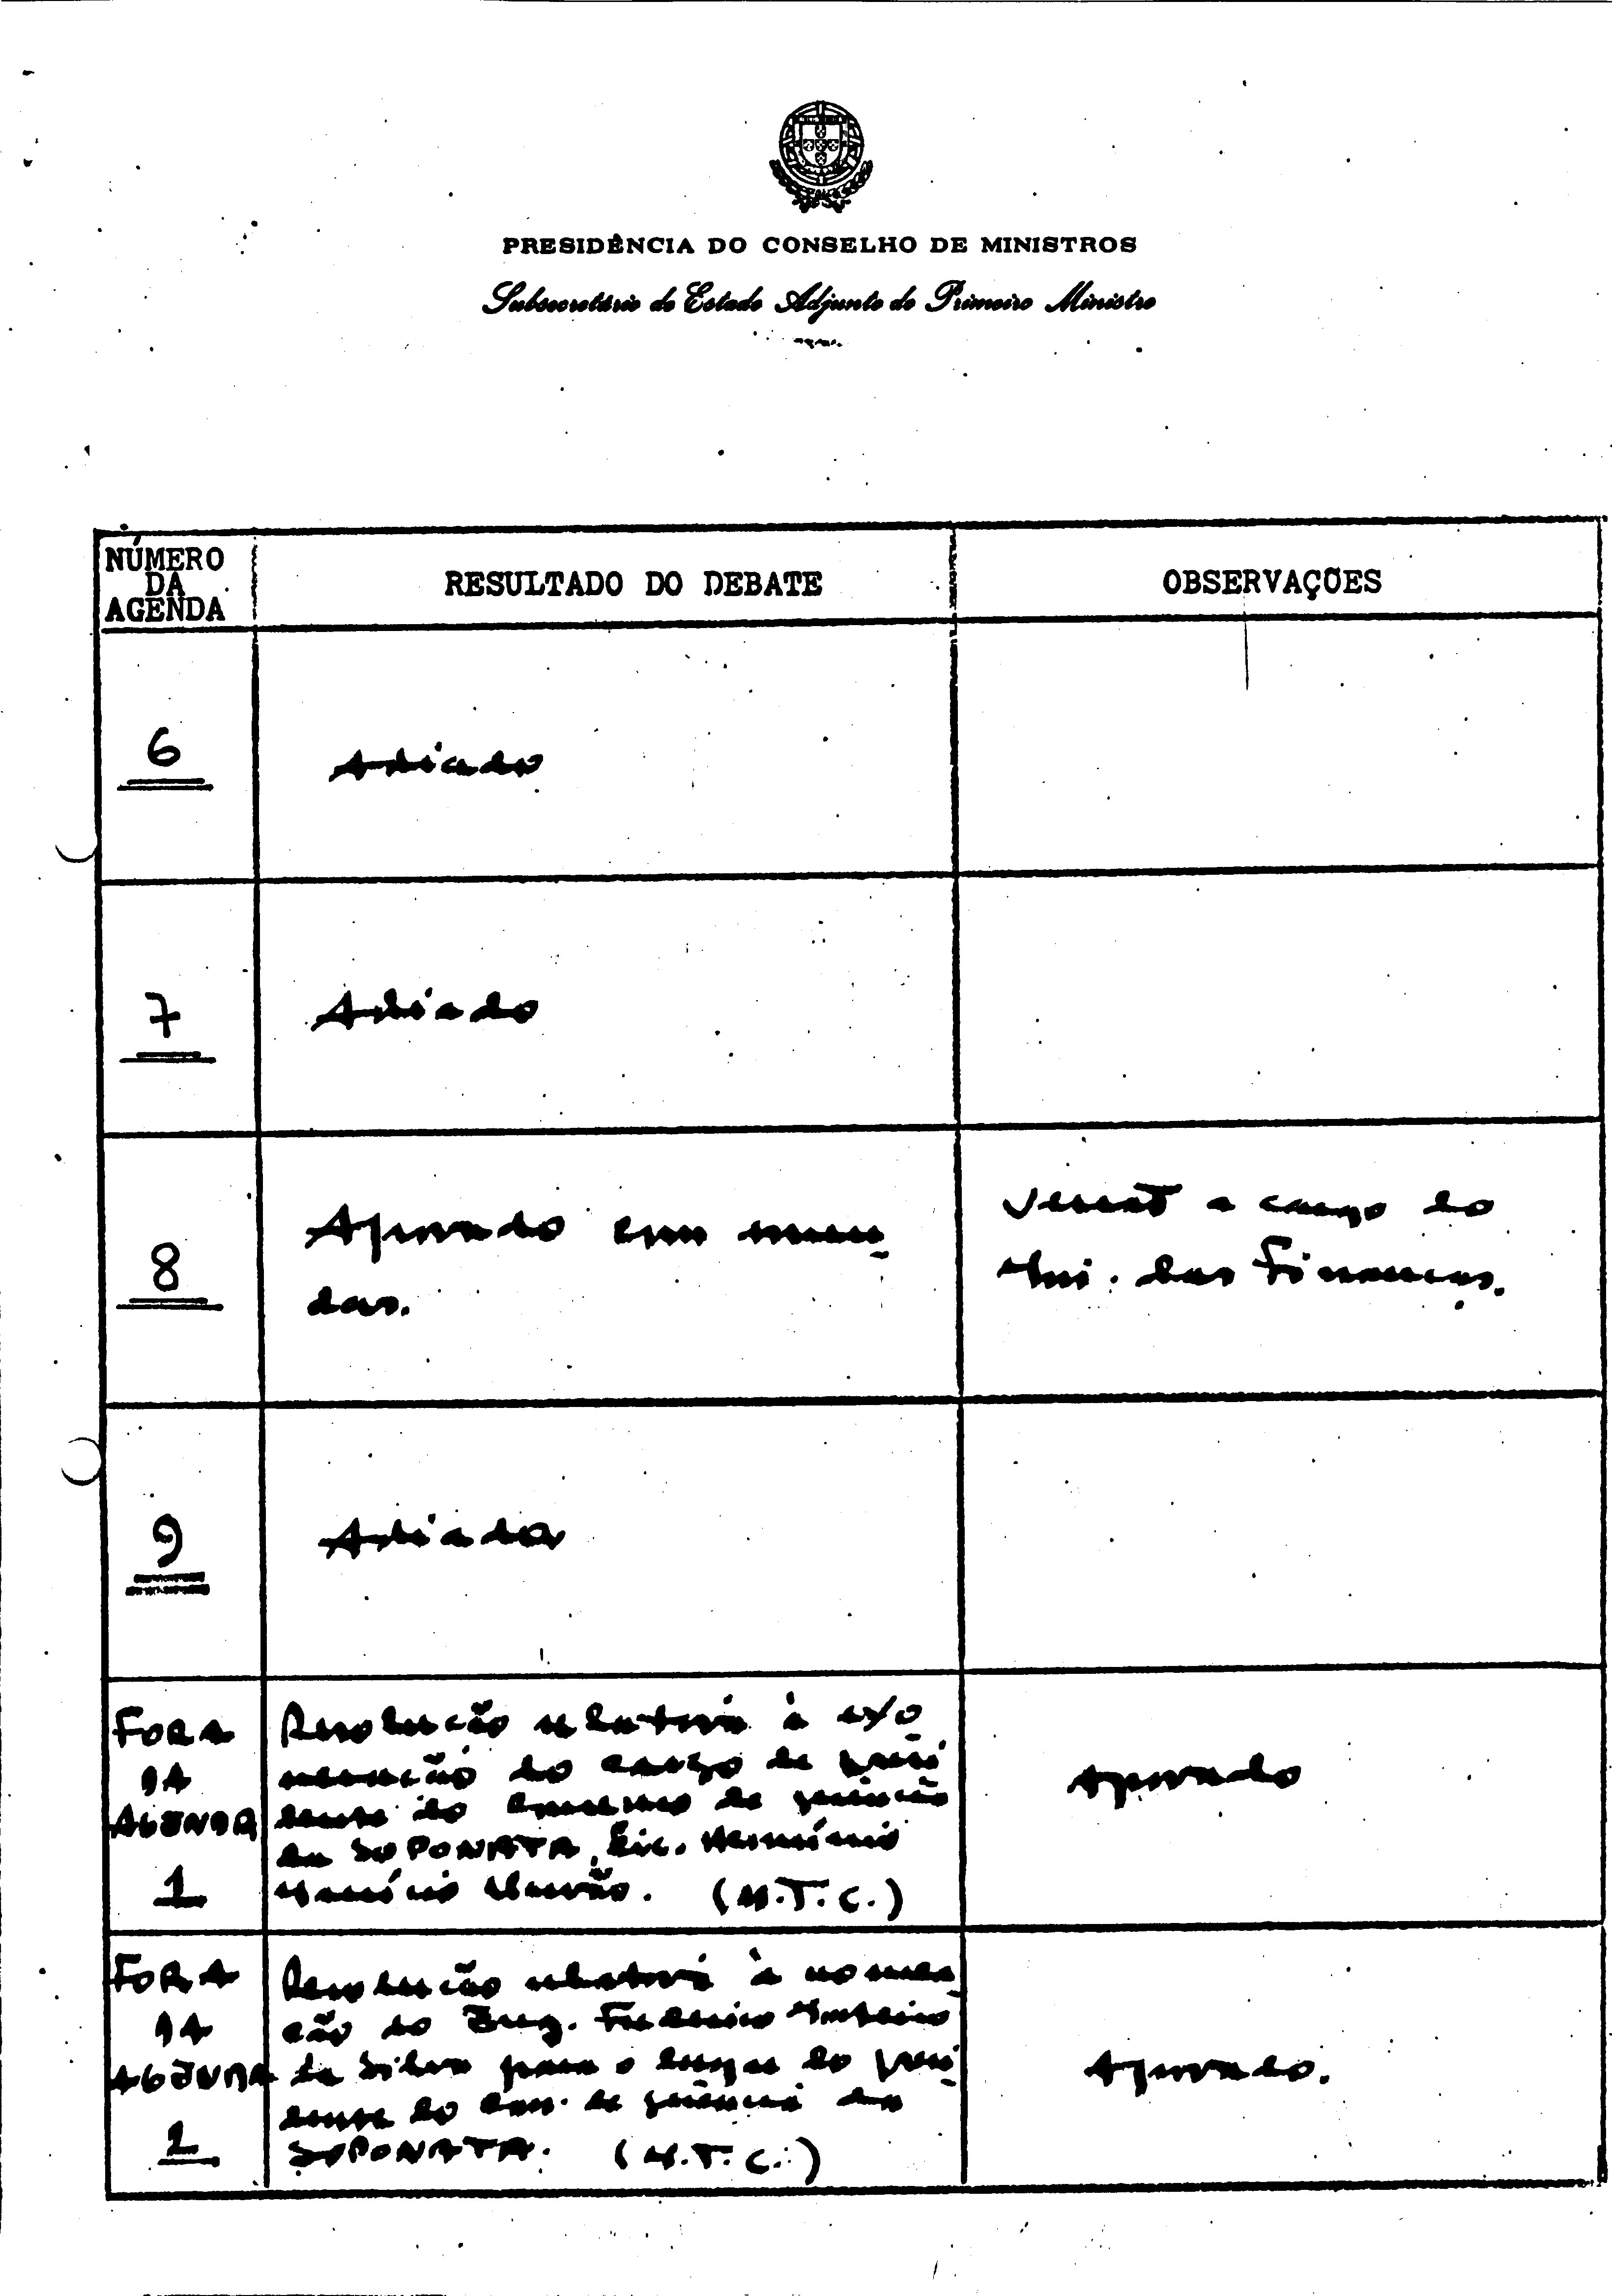 PRESIDÊNCIA DO CONSELHO DE MINISTROS
Subsecretário de Estado Adjunto do Primeiro Ministro
NÚMERO DA AGENDA
RESULTADO DO DEBATE
OBSERVAÇÕES
6
Adiado
7
Adiado
8
Aprovado com emen-
das.
a cargo do
Min. das Finanças.
9
Adiado
FORA
DA
AGENDA
1
Resolução relativa à exo-
neração do cargo de presi
dente do conselho de gerência
da SOPONATA, Lic. Hermínio
(M.T.C.)
Aprovado
FORA
DA
AGENDA
2
Resolução relativa à nomea-
ção do Eng. Frederico Monteiro
da Silva para o lugar de presi
dente do con. de gerência da
SOPONATA. (M.T.C.)
Aprovado.